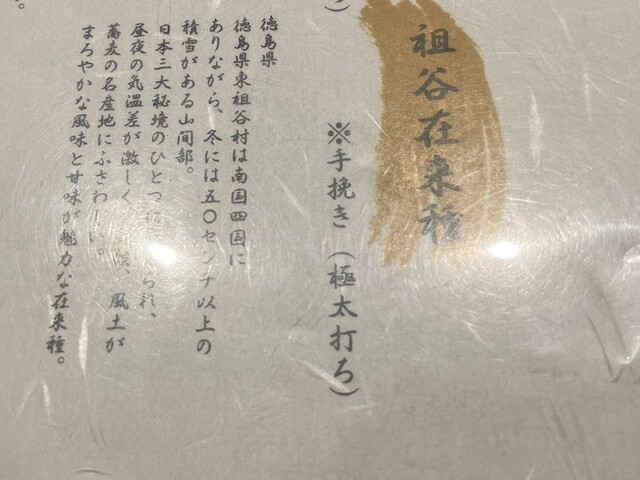 祖谷在来種
※手挽き（極太打ち）
徳島県
徳島県東祖谷村は南国四国に
ありながら、冬には五〇センチ以上の
積雪がある山間部。
日本三大秘境のひとつに られ、
昼夜の気温差が激しく、 、風土が
蕎麦の名産地にふさわしい。
まろやかな風味と甘味が魅力な在来種。